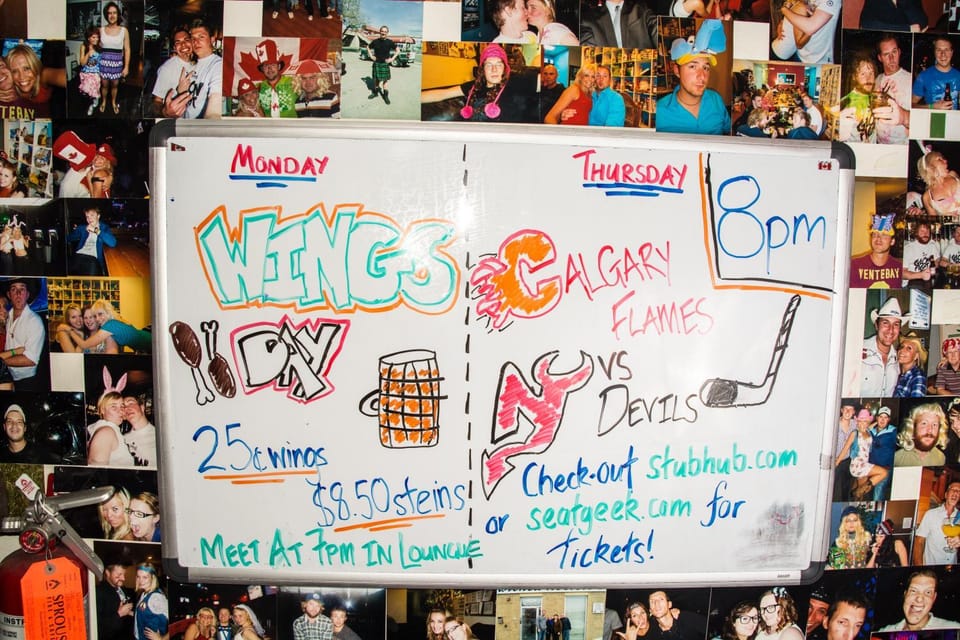 MONDAY
WINGS
DAY
25¢ wings
$8.50 steins
MEET AT 7PM IN LOUNGUE
THURSDAY
8pm
CALGARY
FLAMES
NJ VS
DEVILS
Check-out stubhub.com
or seatgeek.com for
Tickets!
VENTEBAY